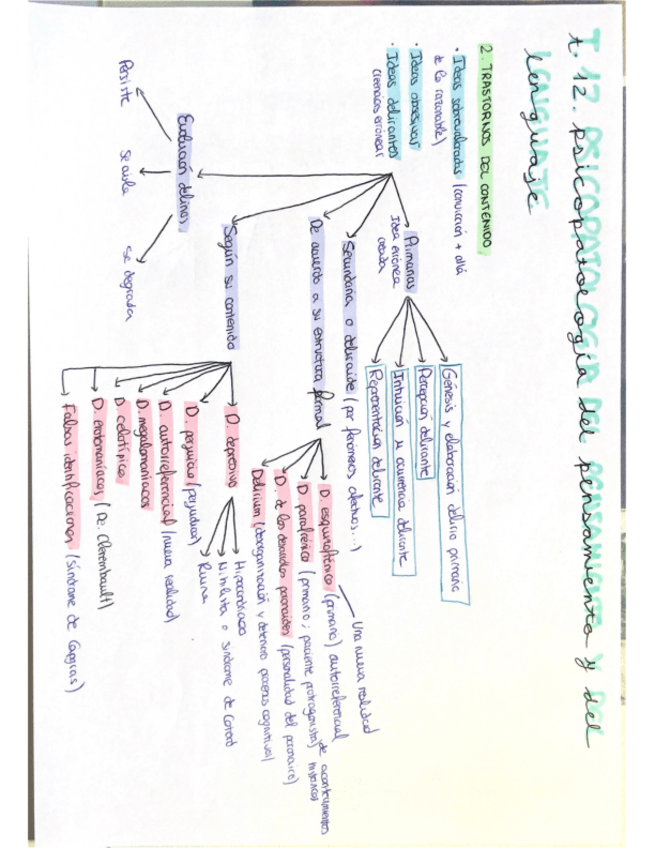 T. 12. PSICOPATOLOGÍA DEL PENSAMIENTO Y DEL
LENGUAJE
t. 12. psicopatología del pensamiento y del
lenguaje
2. TRASTORNOS DEL CONTENIDO
• Ideas sobrevaloradas (convicción + allá
de lo razonable)
• Ideas obsesivas
• Ideas delirantes
creencias erróneas
Primarias
Idea errónea
Génesis y elaboración delirio primario
Percepción delirante
Intuición u ocurrencia delirante
Representación delirante
Secundaria o deliroide (por fenómenos afectivos...)
De acuerdo a su estructura formal
D. esquizofrénico (primario) autorreferencial
Una nueva realidad
D. parafrénico (primario; paciente protagonista)
de acontecimientos
históricos
D. de los desarrollos paranoides (personalidad del paranoico)
Delirium (desorganización y deterioro procesos cognitivos)
Según su contenido
D. depresivo
Hipocondríaco
Nihilista o síndrome de Cotard
Ruina
D. perjuicio (perjudicar)
D. autorreferencial (nueva realidad)
D. megalomaníacos
D. celotípico
D. erotomaníacos (De. Clerembault)
Falsas identificaciones (Síndrome de Capgras)
Evolución delirios
Persiste
Se aísla
se degrada